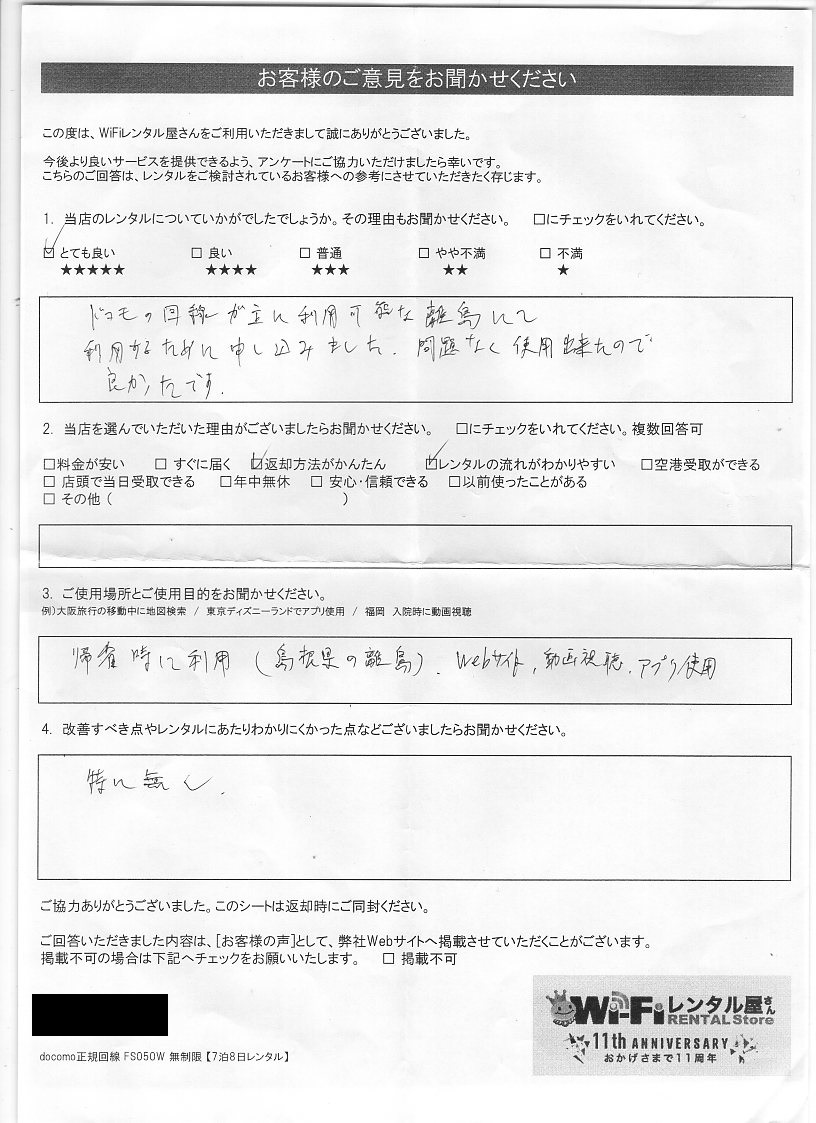 お客様のご意見をお聞かせください
この度は、WiFiレンタル屋さんをご利用いただきまして誠にありがとうございました。
今後より良いサービスを提供できるよう、アンケートにご協力いただけましたら幸いです。
こちらのご回答は、レンタルをご検討されているお客様への参考にさせていただきたく存じます。
1. 当店のレンタルについていかがでしたでしょうか。その理由もお聞かせください。 □にチェックをいれてください。
☑ とても良い □ 良い □ 普通 □ やや不満 □ 不満
★★★★★ ★★★★ ★★★ ★★ ★
ドコモの回線が主に利用可能な離島にて
利用するために申し込みました。問題なく使用出来たので
良かったです。
2. 当店を選んでいただいた理由がございましたらお聞かせください。 □にチェックをいれてください。複数回答可
□料金が安い □ すぐに届く ☑返却方法がかんたん ☑レンタルの流れがわかりやすい □空港受取ができる
□ 店頭で当日受取できる □年中無休 □ 安心・信頼できる □以前使ったことがある
□ その他 ( )
3. ご使用場所とご使用目的をお聞かせください。
例)大阪旅行の移動中に地図検索 / 東京ディズニーランドでアプリ使用 / 福岡 入院時に動画視聴
帰省時に利用(島根県の離島)、Webサイト、動画視聴、アプリ使用
4. 改善すべき点やレンタルにあたりわかりにくかった点などございましたらお聞かせください。
特に無し。
ご協力ありがとうございました。このシートは返却時にご同封ください。
ご回答いただきました内容は、[お客様の声]として、弊社Webサイトへ掲載させていただくことがございます。
掲載不可の場合は下記へチェックをお願いいたします。 □ 掲載不可
Wi-Fiレンタル屋さん
RENTAL Store
11th ANNIVERSARY
おかげさまで11周年
docomo正規回線 FS050W 無制限【7泊8日レンタル】